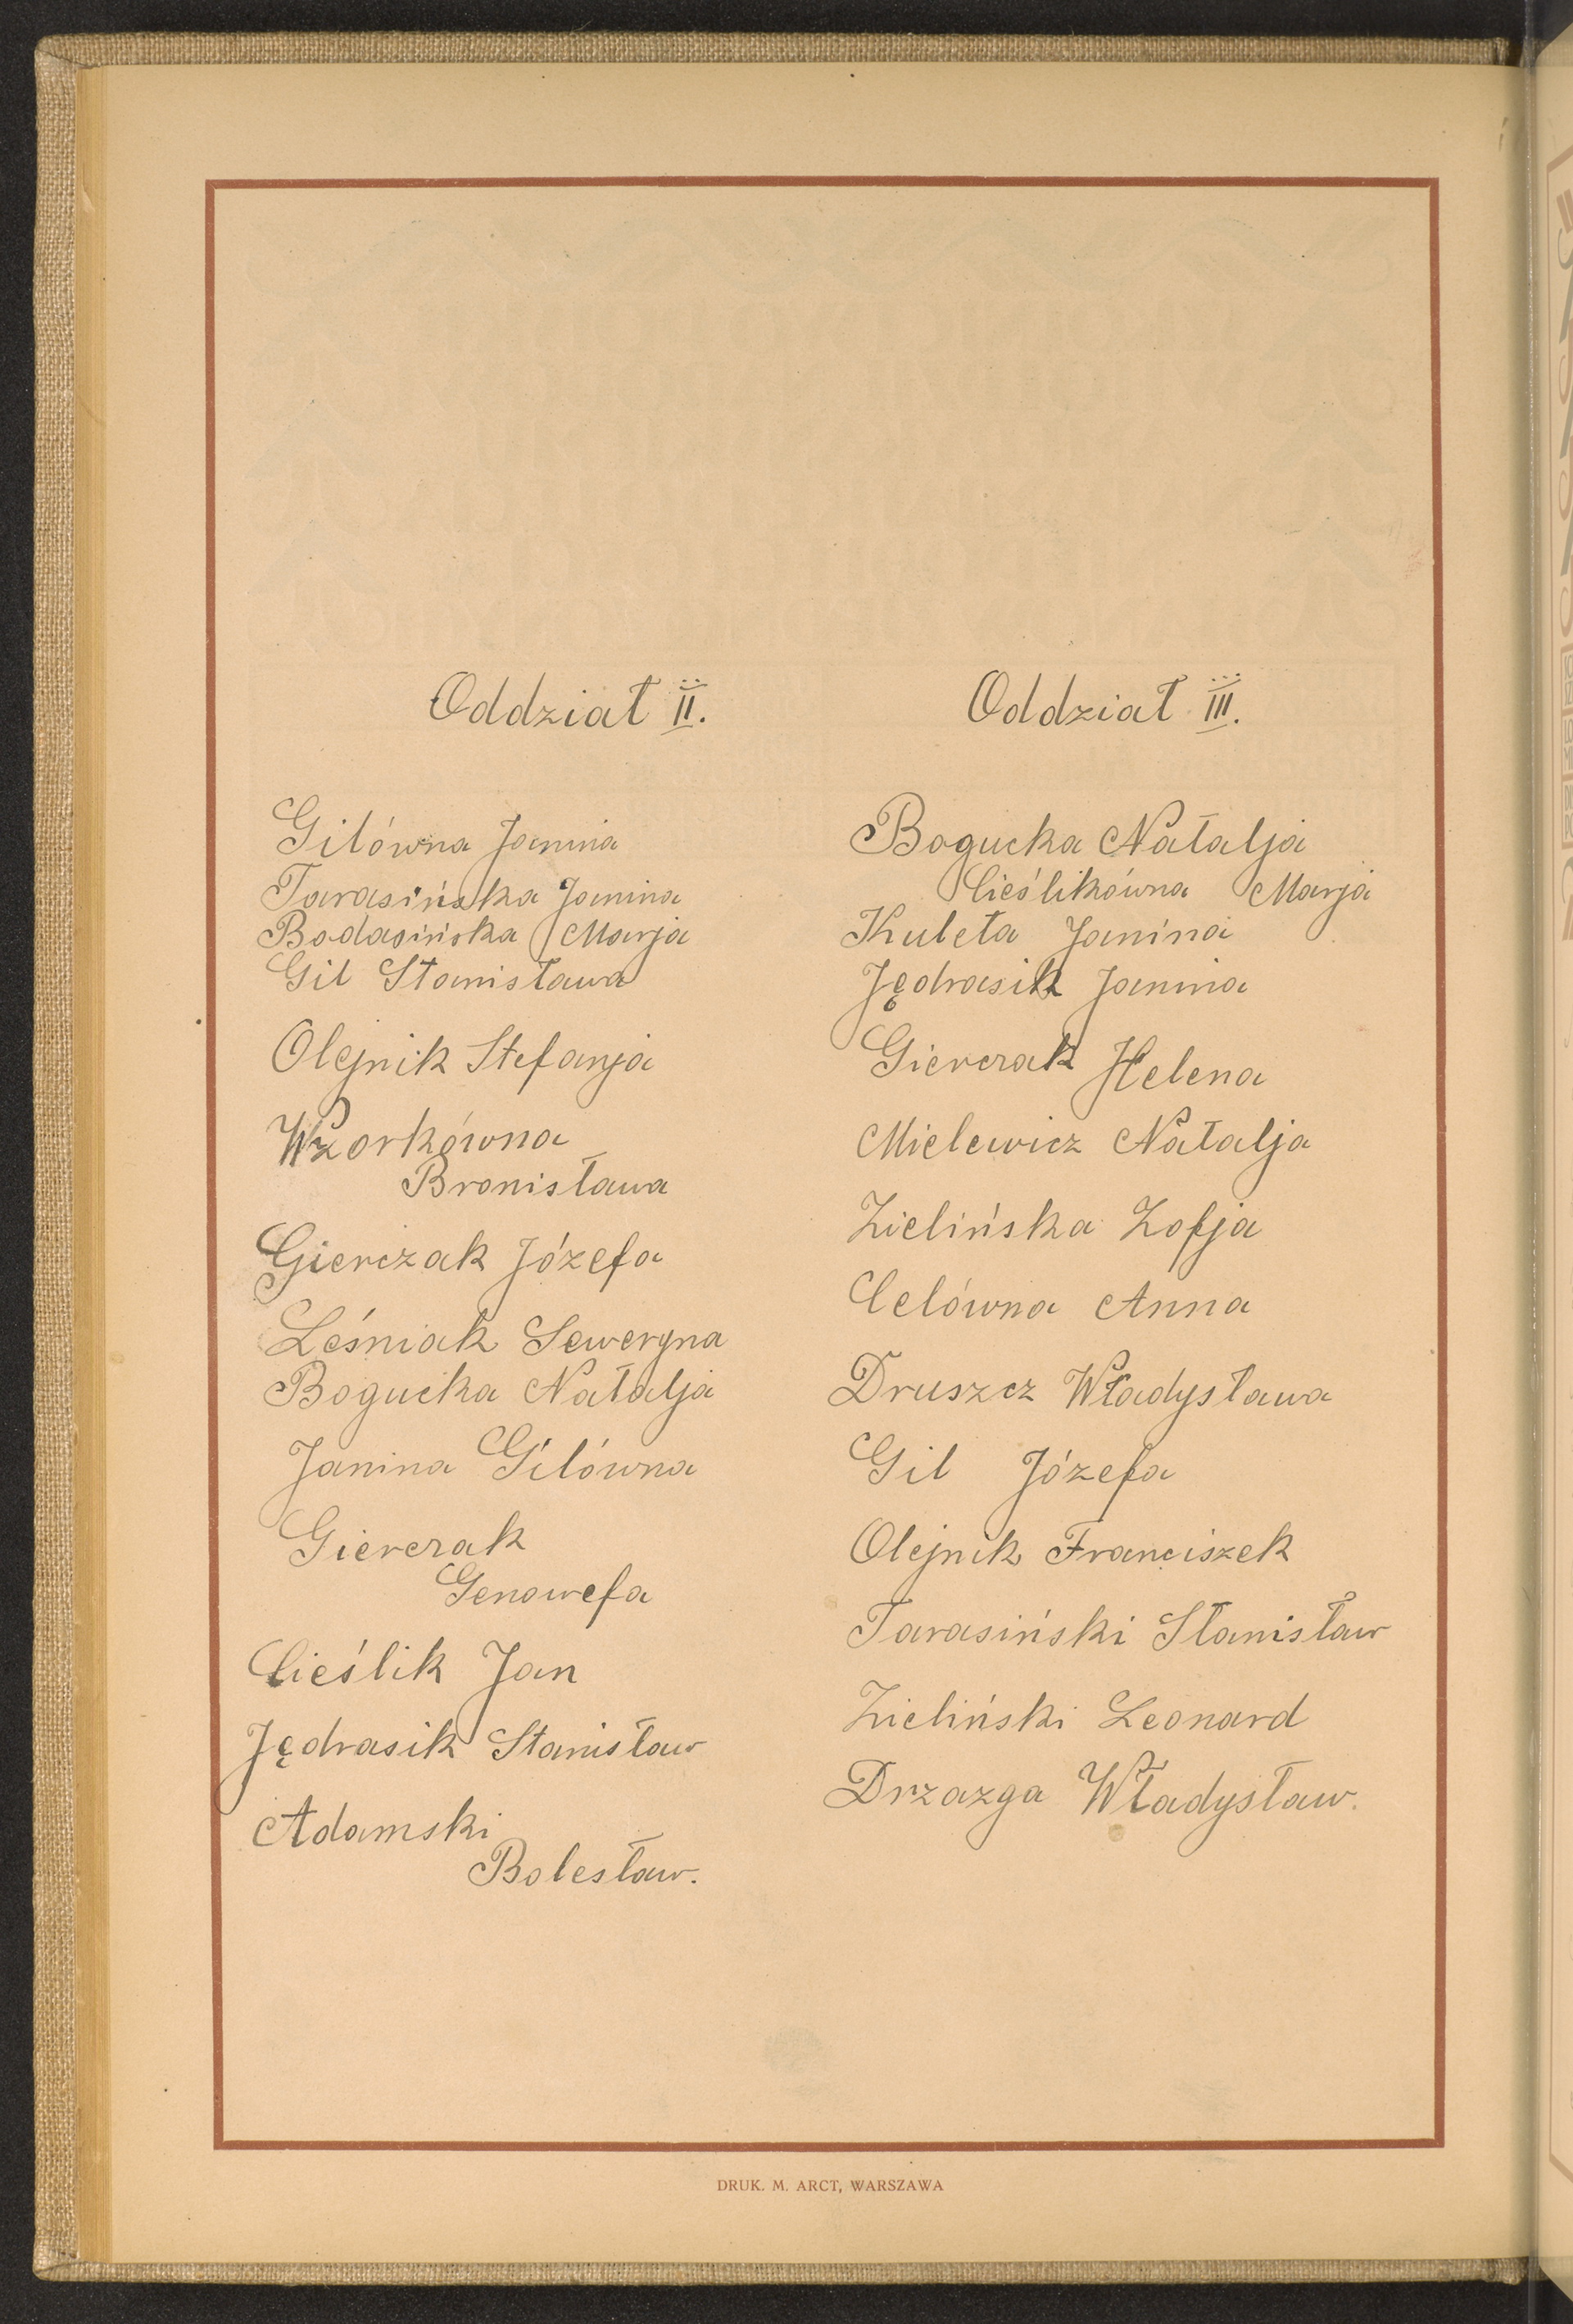 Oddział II.
Gilówna Janina
Tarasińska Janina
Badasińska Marja
Gil Stanisława
Olejnik Stefanja
Wzorkówna
Bronisława
Gierczak Józefa
Leśniak Seweryna
Bogucka Natalja
Janina Gilówna
Gierczak
Genowefa
Cieślik Jan
Jędrasik Stanisław
Adamski
Bolesław.
Oddział III.
Bogucka Natalja
Cieślikówna Marja
Kuleta Janina
Jędrasik Janina
Gierczak Helena
Mielewicz Natalja
Zielińska Zofja
Celówna Anna
Druszcz Władysława
Gil Józefa
Olejnik Franciszek
Tarasiński Stanisław
Zieliński Leonard
Drzazga Władysław.
DRUK. M. ARCT, WARSZAWA